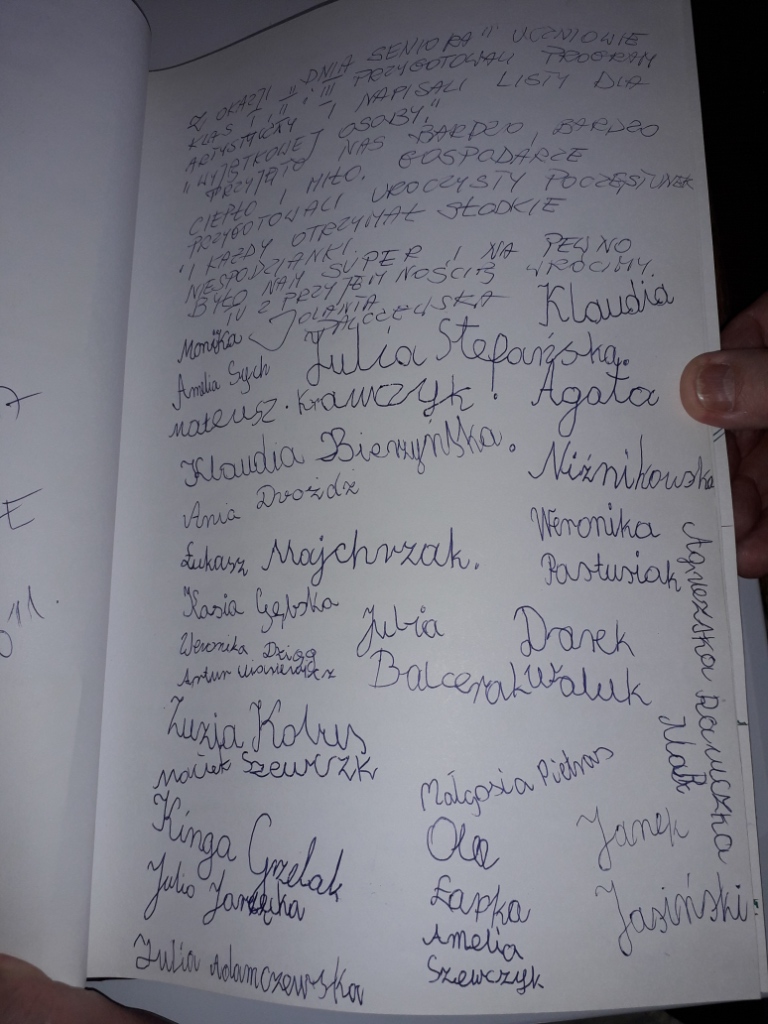 Z OKAZJI "DNIA SENIORA" UCZNIOWIE
KLAS I, II i III PRZYGOTOWALI PROGRAM
ARTYSTYCZNY I NAPISALI LISTY DLA
"WYJĄTKOWEJ OSOBY."
PRZYJĘTO NAS BARDZO, BARDZO
CIEPŁO I MIŁO. GOSPODARZE
PRZYGOTOWALI UROCZYSTY POCZĘSTUNEK
I KAŻDY OTRZYMAŁ SŁODKIE
NIESPODZIANKI.
BYŁO NAM SUPER I NA PEWNO
TU Z PRZYJEMNOŚCIĄ WRÓCIMY.
JOLANTA
Monika
Klaudia
Amelia Sych
Julia Stefańska.
Mateusz. Krawczyk.
Agata
Niźnikowska
Klaudia Bierzyńska.
Ania Drożdż
Weronika
Pastusiak
Łukasz Majchrzak.
Kasia
Julia
Balcerak
Darek
Waluk
Weronika
Artur
Agnieszka
Zuzia Kobus
Maciek Szewczyk
Małgosia Pietras
Kinga Grzelak
Ola
Łapka
Janek
Jasiński.
Julia
Amelia
Szewczyk
Julia Adamczewska
E
11.